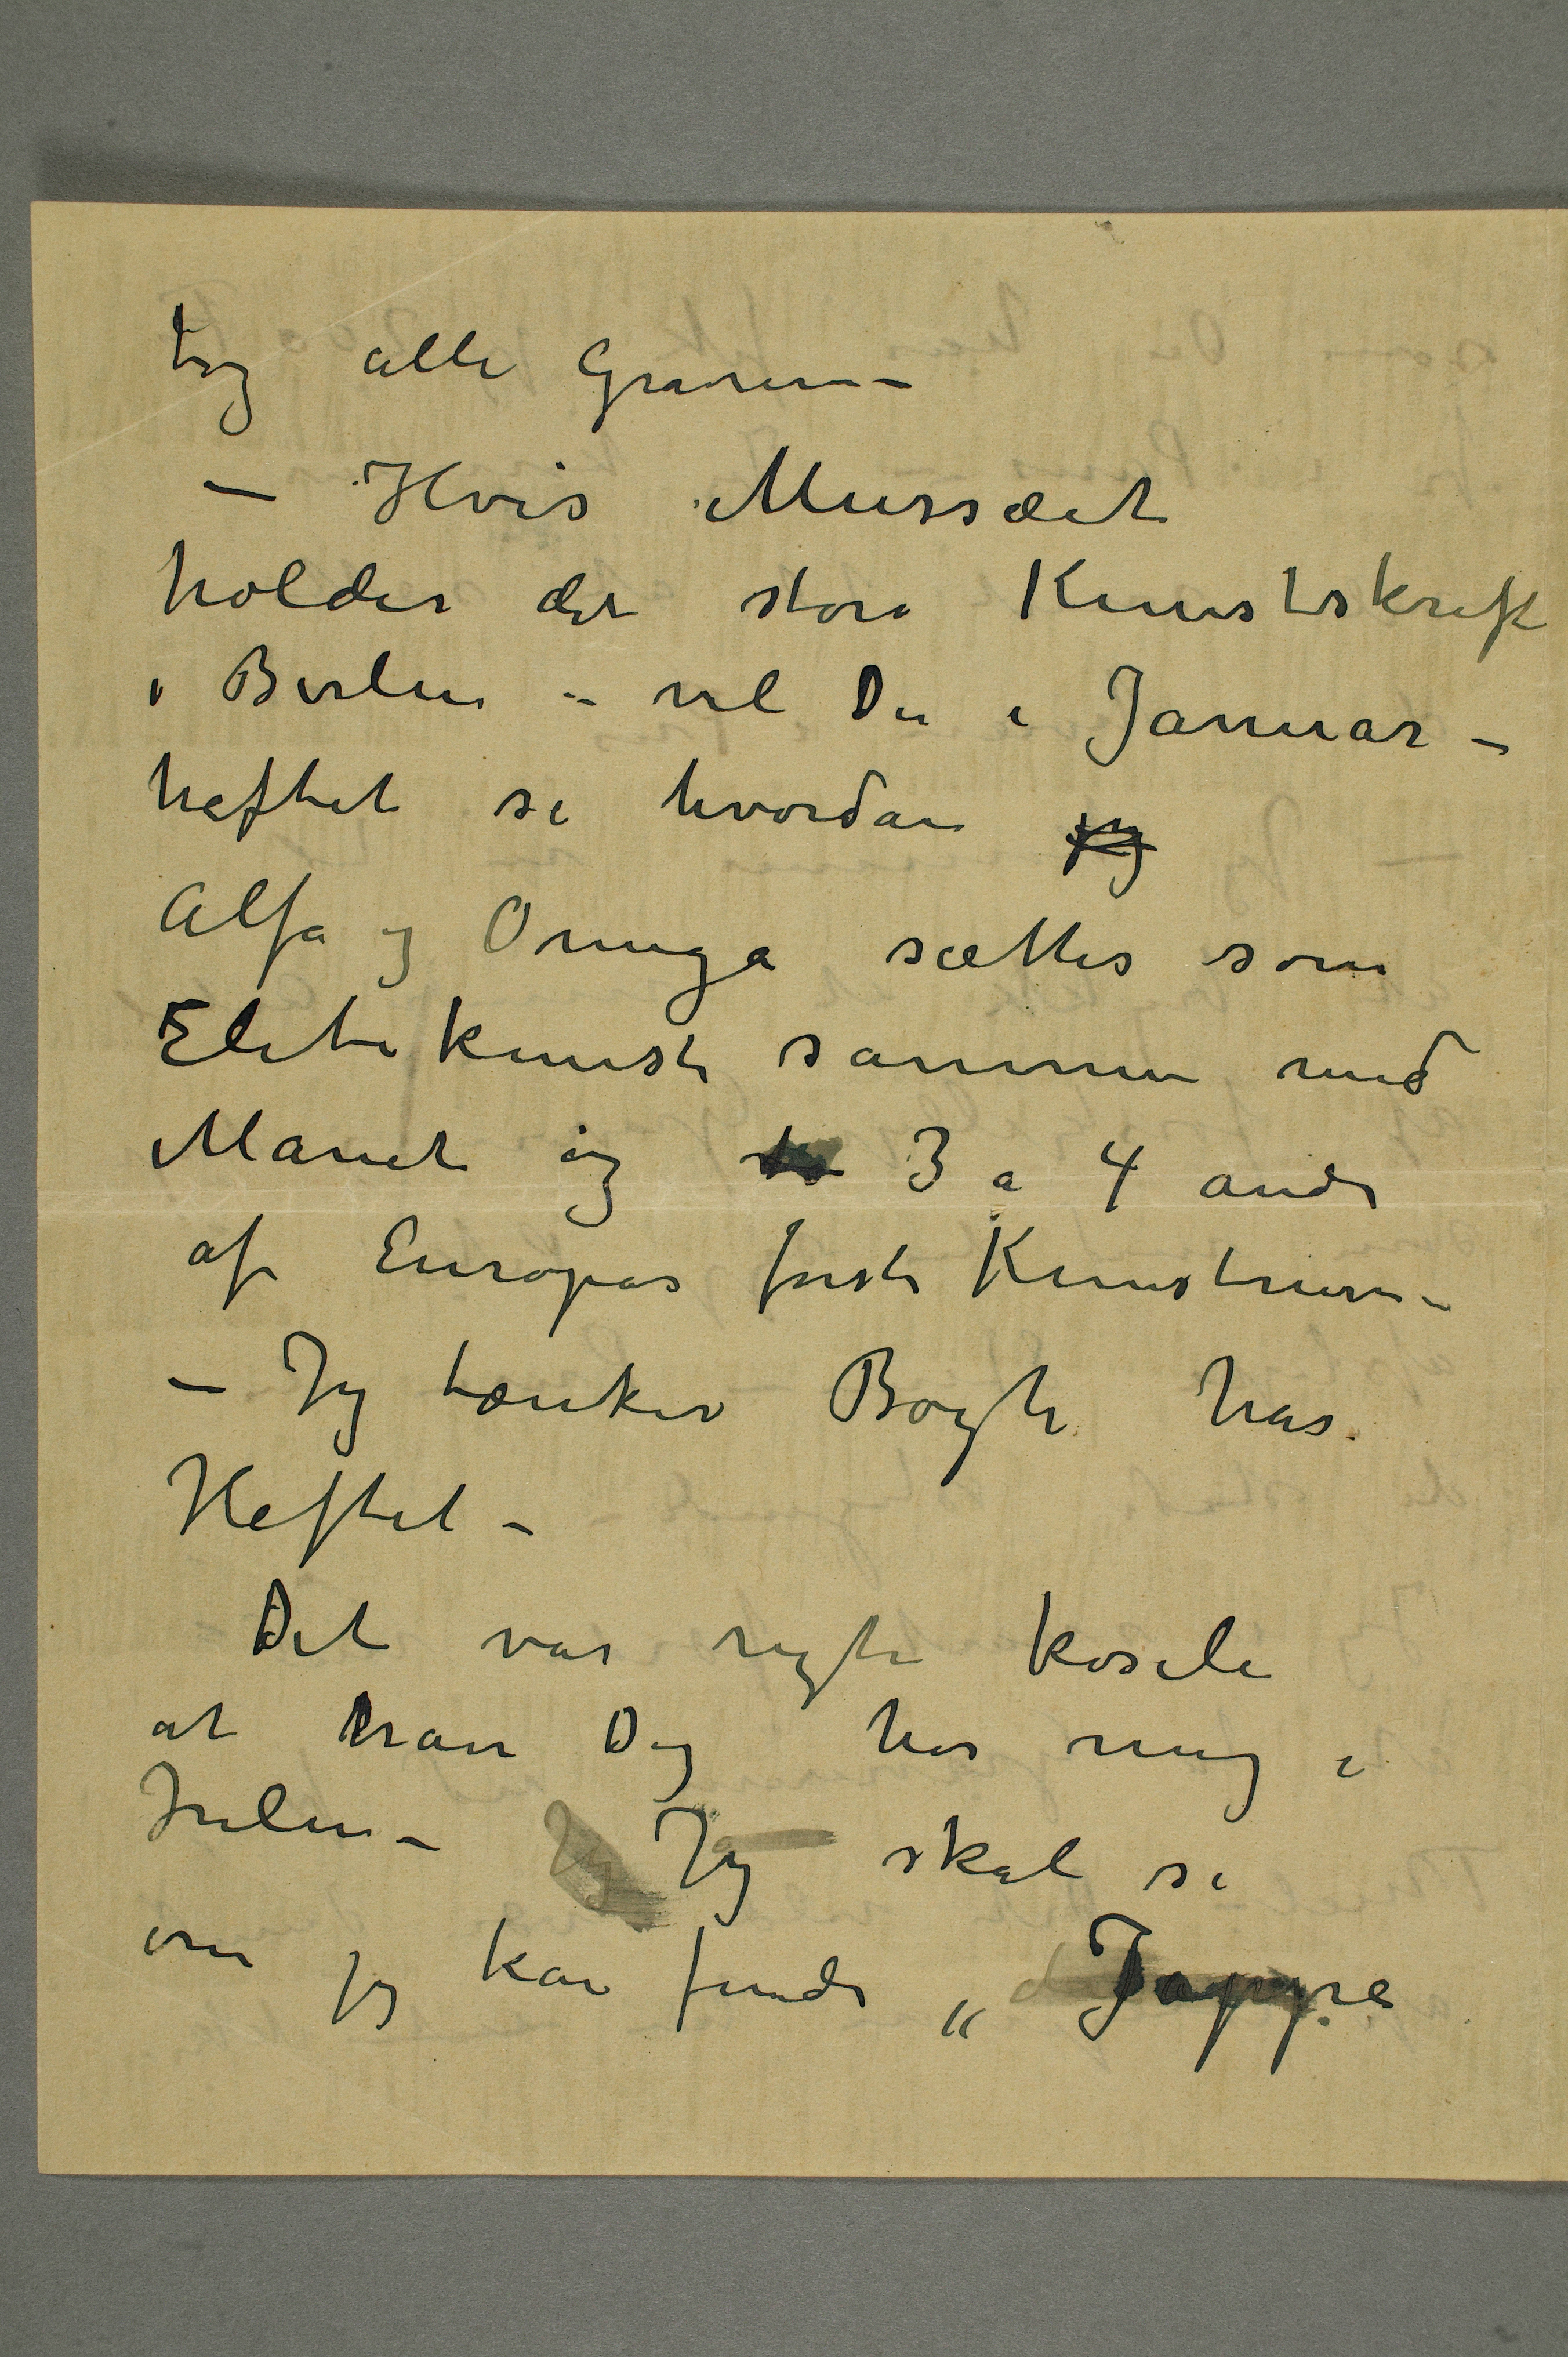 tog alle Graverne –
– Hvis Mussæet
holder det store Kunstskrift
i Berlin – vil Du i Januar –
heftet se hvordan jeg
Alfa og Omega sættes som
Elitekunst sammen med
Manet og to 3 a 4 andre
af Europas første Kunstnere –
– Jeg tænker Bøgh har
Heftet –
Det var rigti koseli
at have Dig hos mig i
Julen – Jeg Jeg skal se
om jeg kan finde „